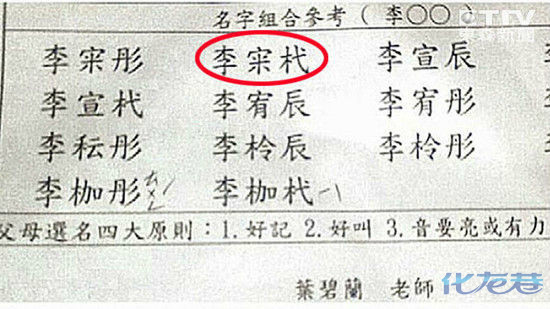 名字組合參考(李〇〇)
李寀彤 李寀杙 李宣辰
李宣杙 李宥辰 李宥彤
李秐彤 李柃辰 李柃彤
李枷彤 李枷杙
父母選名四大原則：1.好記 2.好叫 3.音要亮或有力
葉碧蘭 老師
化龙巷